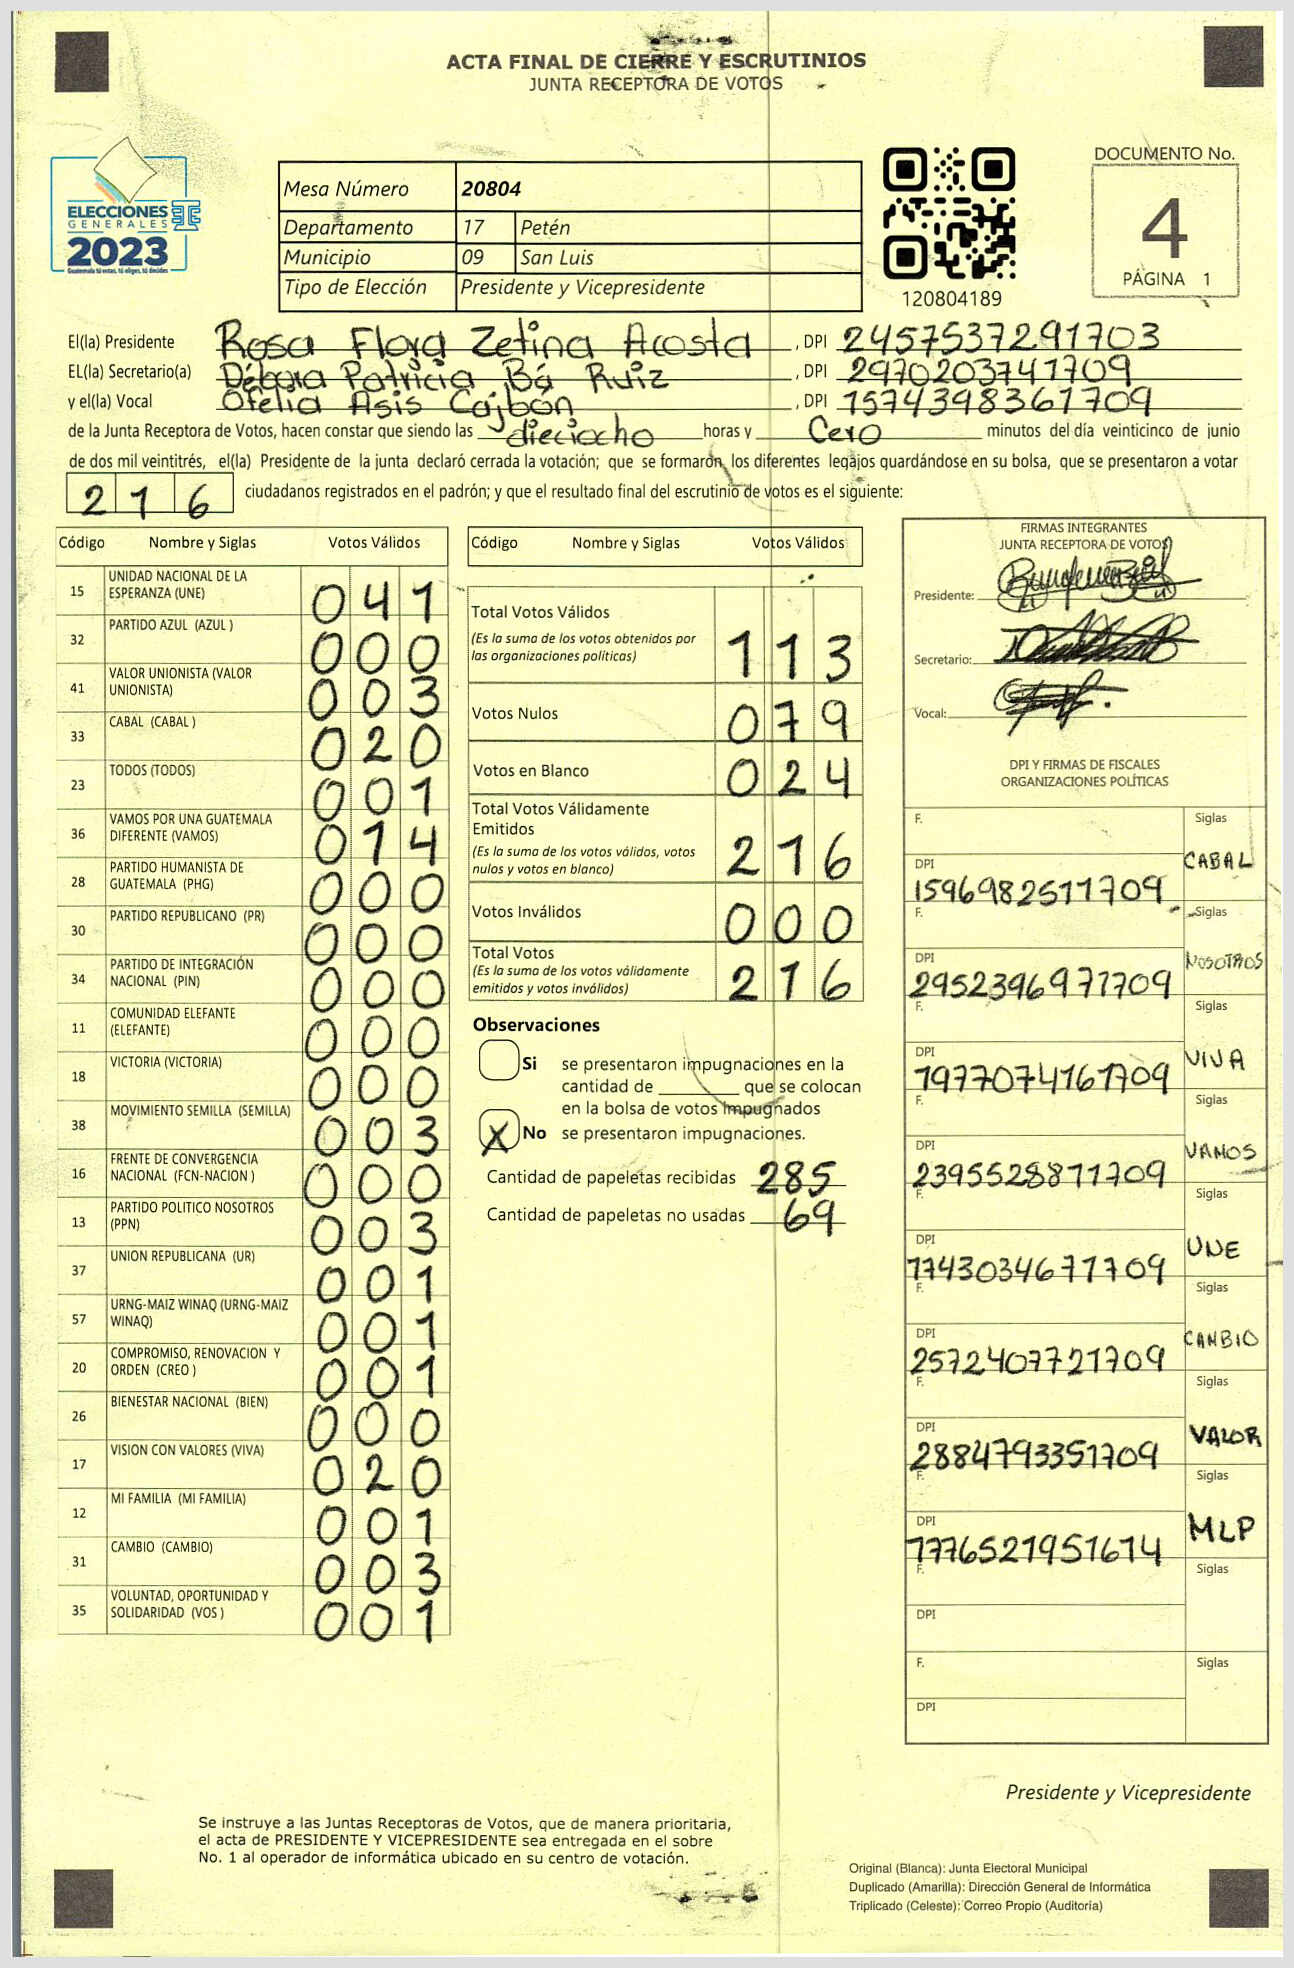 ACTA FINAL DE CIERRE Y ESCRUTINIOS
JUNTA RECEPTORA DE VOTOS
ELECCIONES
GENERALES
2023
Guatemala tú votas, tú eliges, tú decides
Mesa Número 20804
Departamento 17 Petén
Municipio 09 San Luis
Tipo de Elección Presidente y Vicepresidente
120804189
DOCUMENTO No.
4
PÁGINA 1
El(la) Presidente Rosa Flora Zetina Acosta , DPI 2457537291703
EL(la) Secretario(a) Débora Patricia Bá Ruiz , DPI 2970203741709
y el(la) Vocal Ofelia Asis Cajbón , DPI 1574398361709
de la Junta Receptora de Votos, hacen constar que siendo las dieciocho horas y Cero minutos del día veinticinco de junio
de dos mil veintitrés, el(la) Presidente de la junta declaró cerrada la votación; que se formaron los diferentes legajos guardándose en su bolsa, que se presentaron a votar
216 ciudadanos registrados en el padrón; y que el resultado final del escrutinio de votos es el siguiente:
Código Nombre y Siglas Votos Válidos
15 UNIDAD NACIONAL DE LA ESPERANZA (UNE) 041
32 PARTIDO AZUL (AZUL ) 000
41 VALOR UNIONISTA (VALOR UNIONISTA) 003
33 CABAL (CABAL ) 020
23 TODOS (TODOS) 001
36 VAMOS POR UNA GUATEMALA DIFERENTE (VAMOS) 014
28 PARTIDO HUMANISTA DE GUATEMALA (PHG) 000
30 PARTIDO REPUBLICANO (PR) 000
34 PARTIDO DE INTEGRACIÓN NACIONAL (PIN) 000
11 COMUNIDAD ELEFANTE (ELEFANTE) 000
18 VICTORIA (VICTORIA) 000
38 MOVIMIENTO SEMILLA (SEMILLA) 003
16 FRENTE DE CONVERGENCIA NACIONAL (FCN-NACION ) 000
13 PARTIDO POLITICO NOSOTROS (PPN) 003
37 UNION REPUBLICANA (UR) 001
57 URNG-MAIZ WINAQ (URNG-MAIZ WINAQ) 001
20 COMPROMISO, RENOVACION Y ORDEN (CREO ) 001
26 BIENESTAR NACIONAL (BIEN) 000
17 VISION CON VALORES (VIVA) 020
12 MI FAMILIA (MI FAMILIA) 001
31 CAMBIO (CAMBIO) 003
35 VOLUNTAD, OPORTUNIDAD Y SOLIDARIDAD (VOS ) 001
Código Nombre y Siglas Votos Válidos
Total Votos Válidos 113
(Es la suma de los votos obtenidos por
las organizaciones politicas)
Votos Nulos 079
Votos en Blanco 024
Total Votos Válidamente
Emitidos 216
(Es la suma de los votos válidos, votos
nulos y votos en blanco)
Votos Inválidos 000
Total Votos 216
(Es la suma de los votos válidamente
emitidos y votos inválidos)
Observaciones
Si se presentaron impugnaciones en la
cantidad de ________ que se colocan
en la bolsa de votos Impugnados
X No se presentaron impugnaciones.
Cantidad de papeletas recibidas 285
Cantidad de papeletas no usadas 69
FIRMAS INTEGRANTES
JUNTA RECEPTORA DE VOTOS
Presidente:
Secretario:
Vocal:
DPI Y FIRMAS DE FISCALES
ORGANIZACIONES POLÍTICAS
F. Siglas
DPI 1596982511709 CABAL
F. Siglas
DPI 2952396971709 NOSOTROS
F. Siglas
DPI 1977074161709 VIVA
F. Siglas
DPI 2395528871709 VAMOS
F. Siglas
DPI 1743034671709 UNE
F. Siglas
DPI 2572407721709 CAMBIO
F. Siglas
DPI 2884793351709 VALOR
F. Siglas
DPI 1776521951614 MLP
F. Siglas
DPI
F. Siglas
DPI
Presidente y Vicepresidente
Se instruye a las Juntas Receptoras de Votos, que de manera prioritaria,
el acta de PRESIDENTE Y VICEPRESIDENTE sea entregada en el sobre
No. 1 al operador de informática ubicado en su centro de votación.
Original (Blanca): Junta Electoral Municipal
Duplicado (Amarilla): Dirección General de Informática
Triplicado (Celeste): Correo Propio (Auditoría)